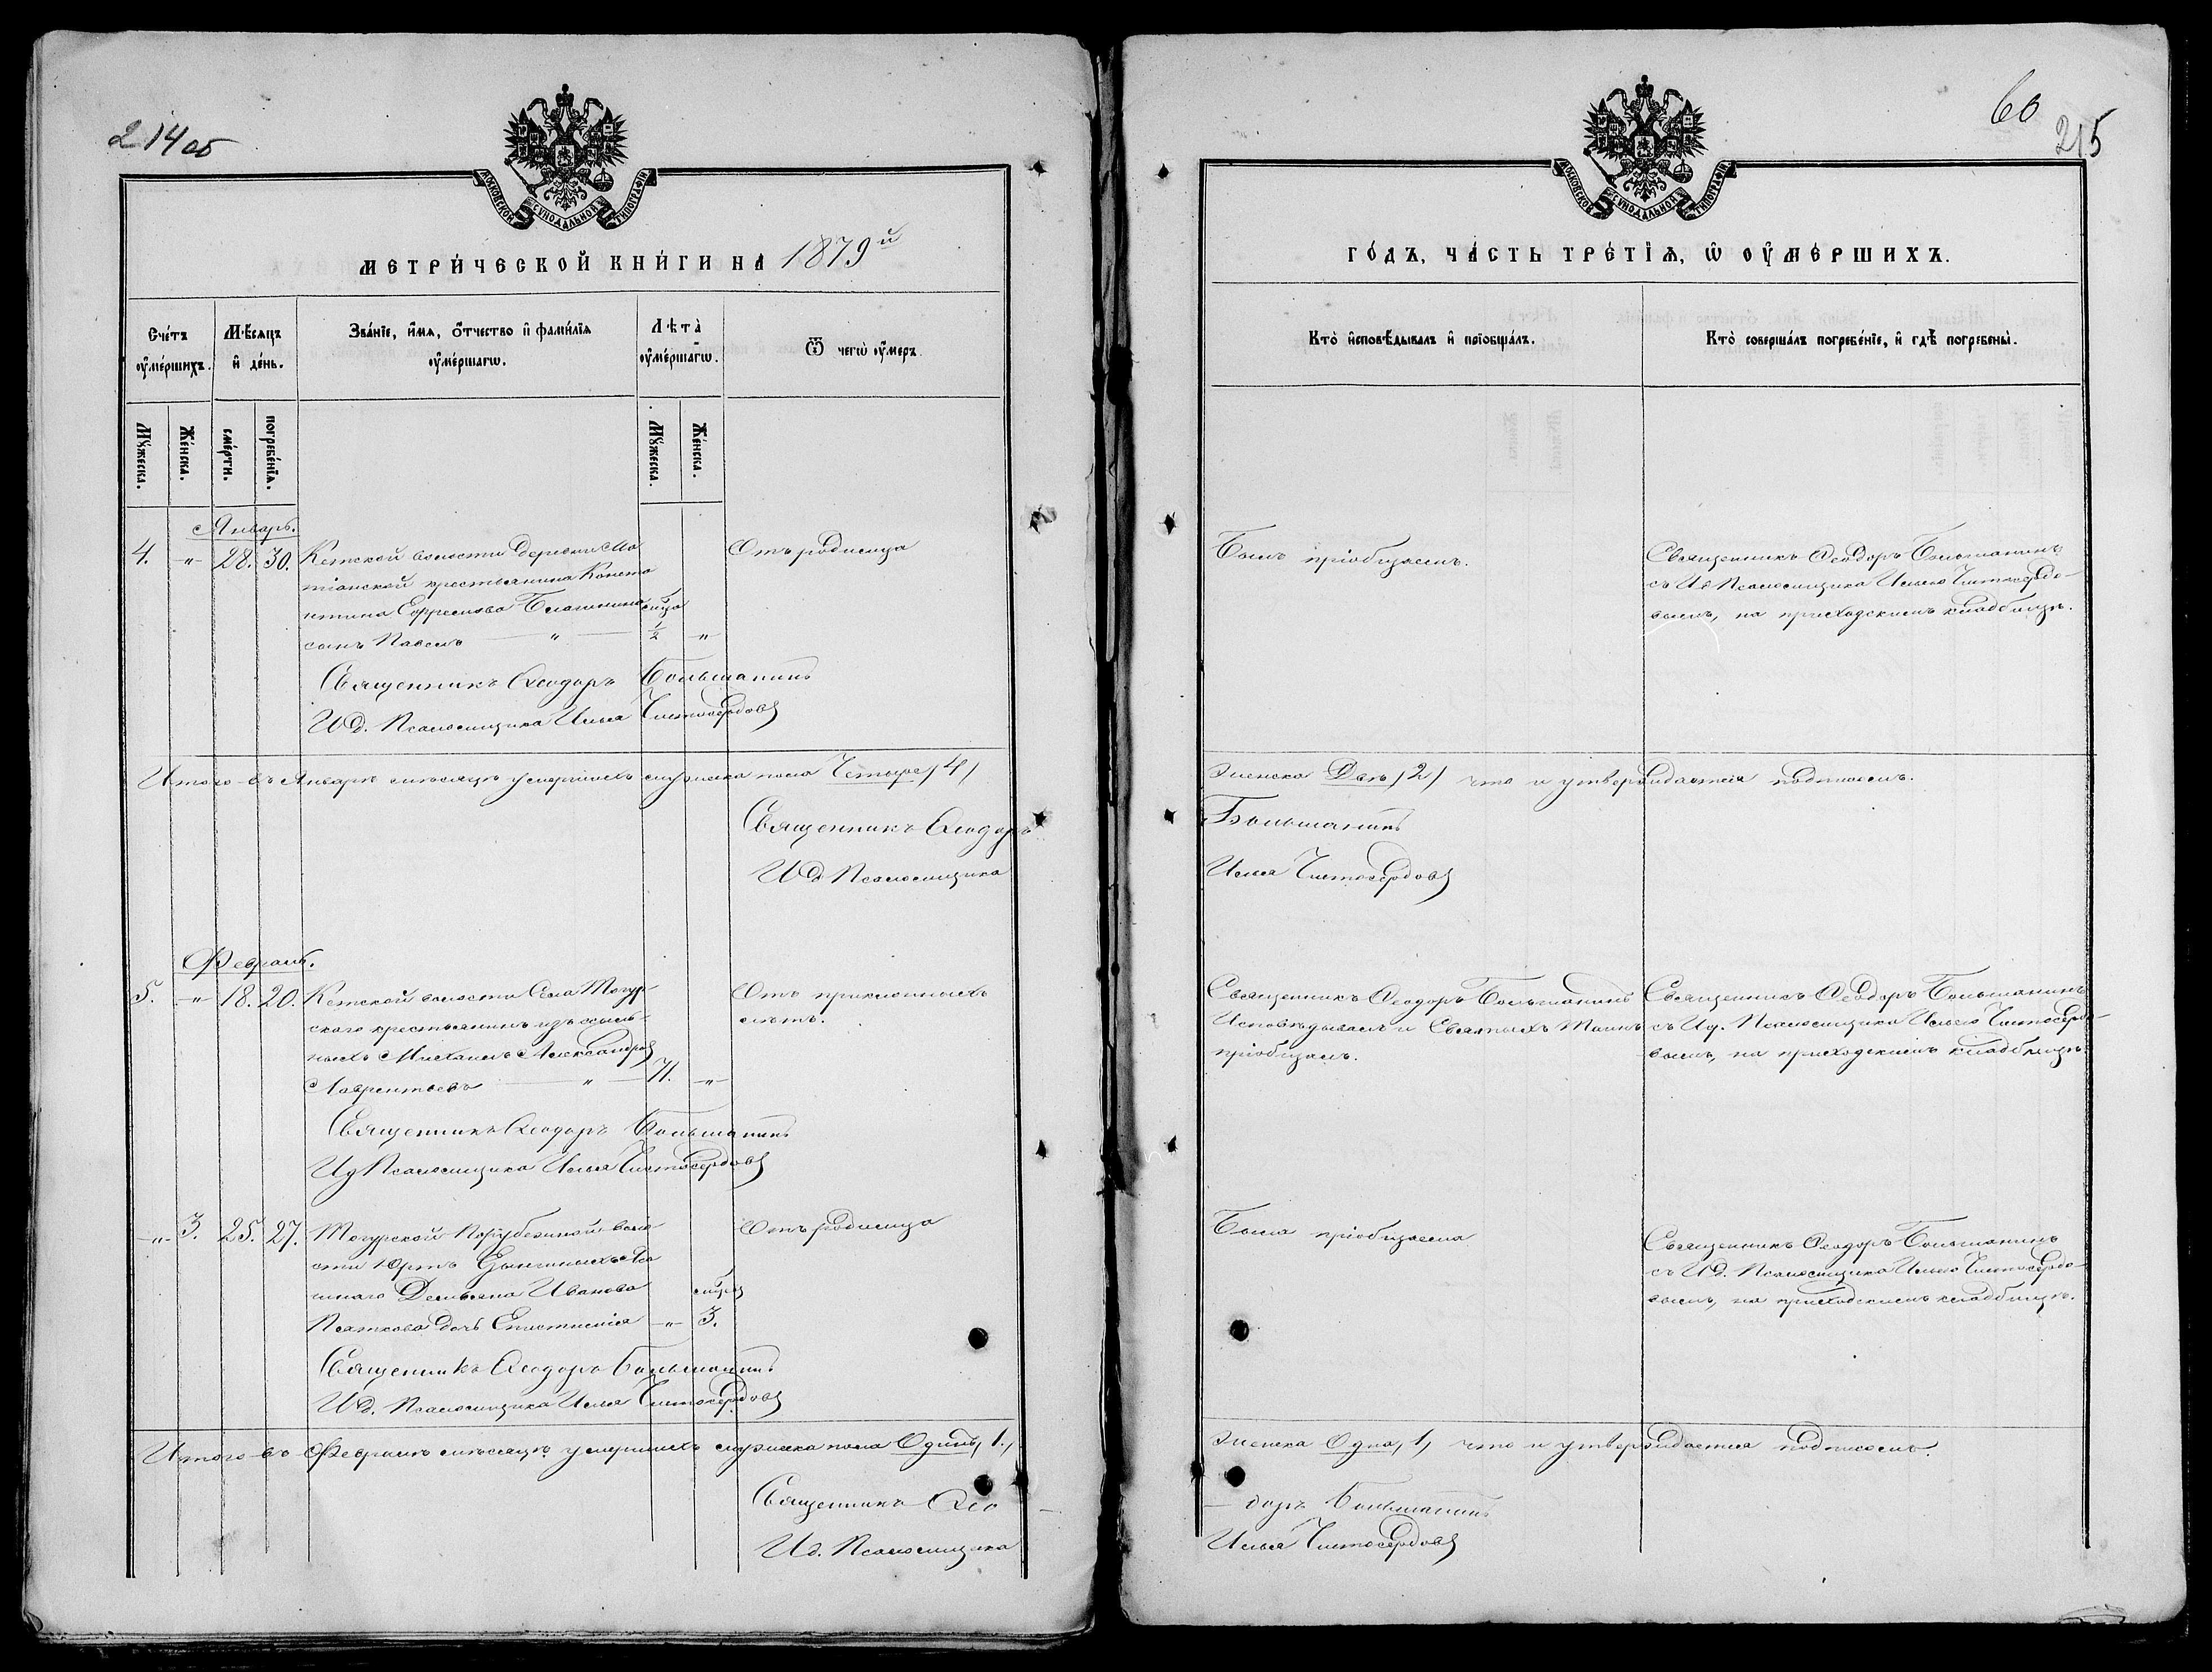 214 об
МОСКОВСКОЙ СУНОДАЛЬНОЙ ТИПОГРАФІИ
МЕТРИ́ЧЕСКОЙ КНИ́ГИ НА 1879й
Сче́тъ ᲂу҆ме́ршихъ.
Мѣ́сяцъ и҆ де́нь.
Зва́нїе, и҆́мя, ѻ҆́тчество и҆ фами́лїя ᲂу҆ме́ршагѡ.
Лѣта̀ ᲂу҆ме́ршагѡ.
Ѿ чегѡ̀ ᲂу҆́меръ.
Мꙋ́жеска.
Же́нска.
сме́рти.
погребе́нїя.
Мꙋ́жеска.
Же́нска.
Январь.
4. -"- 28. 30. Кетской волости деревни Ма
тіанской крестьянина Конста
нтина Ефремова
сынъ Павелъ — " — ½ "
Отъ родимца
Священникъ Ѳеодоръ Большанинъ
И.д. Псаломщика Илья Чистосердовъ
Итого въ Январѣ мѣсяцѣ умершихъ мужеска пола Четыре /4/
Священникъ Ѳеодоръ
И.д. Псаломщика
Февраль.
5. -"- 18. 20. Кетской волости Села Тогур-
скаго крестьянинъ изъ ссыль-
ныхъ Михаилъ Александровъ
Лаврентьевъ — " — 71. -"-
Отъ преклонныхъ
лѣтъ.
Священникъ Ѳеодоръ Большанинъ
И.д. Псаломщика Илья Чистосердовъ
-"- 3. 25. 27. Тогурской Порубежной воло
сти Юртъ
Демьяна Иванова мѣсяц
дочь Епистимія -"- 3.
Отъ родимца
Священникъ Ѳеодоръ Большанинъ
И.д. Псаломщика Илья Чистосердовъ
Итого въ Февралѣ мѣсяцѣ умершихъ мужеска пола Одинъ /1./
Священникъ Ѳео-
И.д. Псаломщика
60
215
МОСКОВСКОЙ СУНОДАЛЬНОЙ ТИПОГРАФІИ
ГО́ДЪ, ЧА́СТЬ ТРЕ́ТЇѦ, Ѽ ОУ҆МЕ́РШИХЪ.
Кто̀ и҆сповѣ́дывалъ и҆ прїѻбща́лъ.
Кто̀ соверша́лъ погребе́нїе, и҆ гдѣ̀ погребены̀.
Былъ пріобщаемъ.
Священникъ Ѳеодоръ Большанинъ
съ И.д. Псаломщика Ильею Чистосердо-
вымъ, на приходскомъ кладбищѣ.
женска Двѣ /2/ что и утверждается подписомъ.
Большанинъ
Илья Чистосердовъ
Священникъ Ѳеодоръ Большанинъ
Исповѣдывалъ и Святыхъ Таинъ
пріобщалъ.
Священникъ Ѳеодоръ Большанинъ
съ И.д. Псаломщика Ильею Чистосердо-
вымъ, на приходскомъ кладбищѣ.
Была пріобщаема
Священникъ Ѳеодоръ Большанинъ
съ И.д. Псаломщика Ильею Чистосердо-
вымъ, на приходскомъ кладбищѣ.
женска Одна /1/ что и утверждается подписомъ.
-доръ Большанинъ
Илья Чистосердовъ